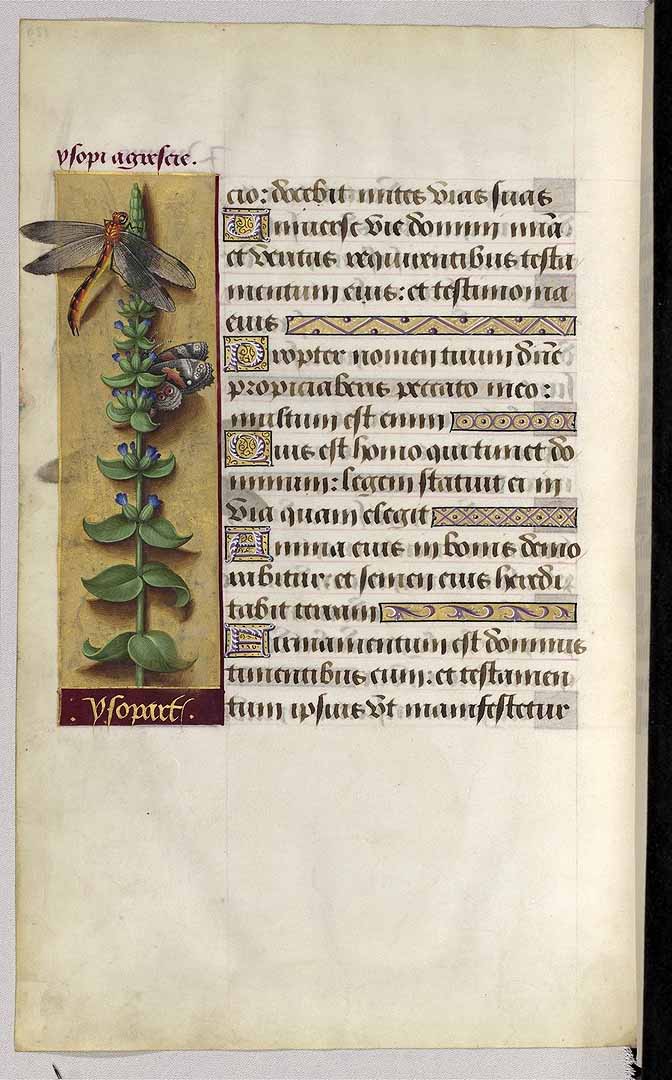 ysopi agrescie.
cio: docebit mites vias suas
Universe vie domini mīa
et veritas requirentibus testa
mentum eius: et testimonia
eius
Propter nomen tuum dn̄e
propiciaberis peccato meo:
multum est enim
Quis est homo qui timet do
minum: legem statuit ei in
via quam elegit
Anima eius in bonis demo
rabitur: et semen eius heredi
tabit terram
Firmamentum est dominus
timentibus eum: et testamen
tum ipsius vt manifestetur
. Ysopart .